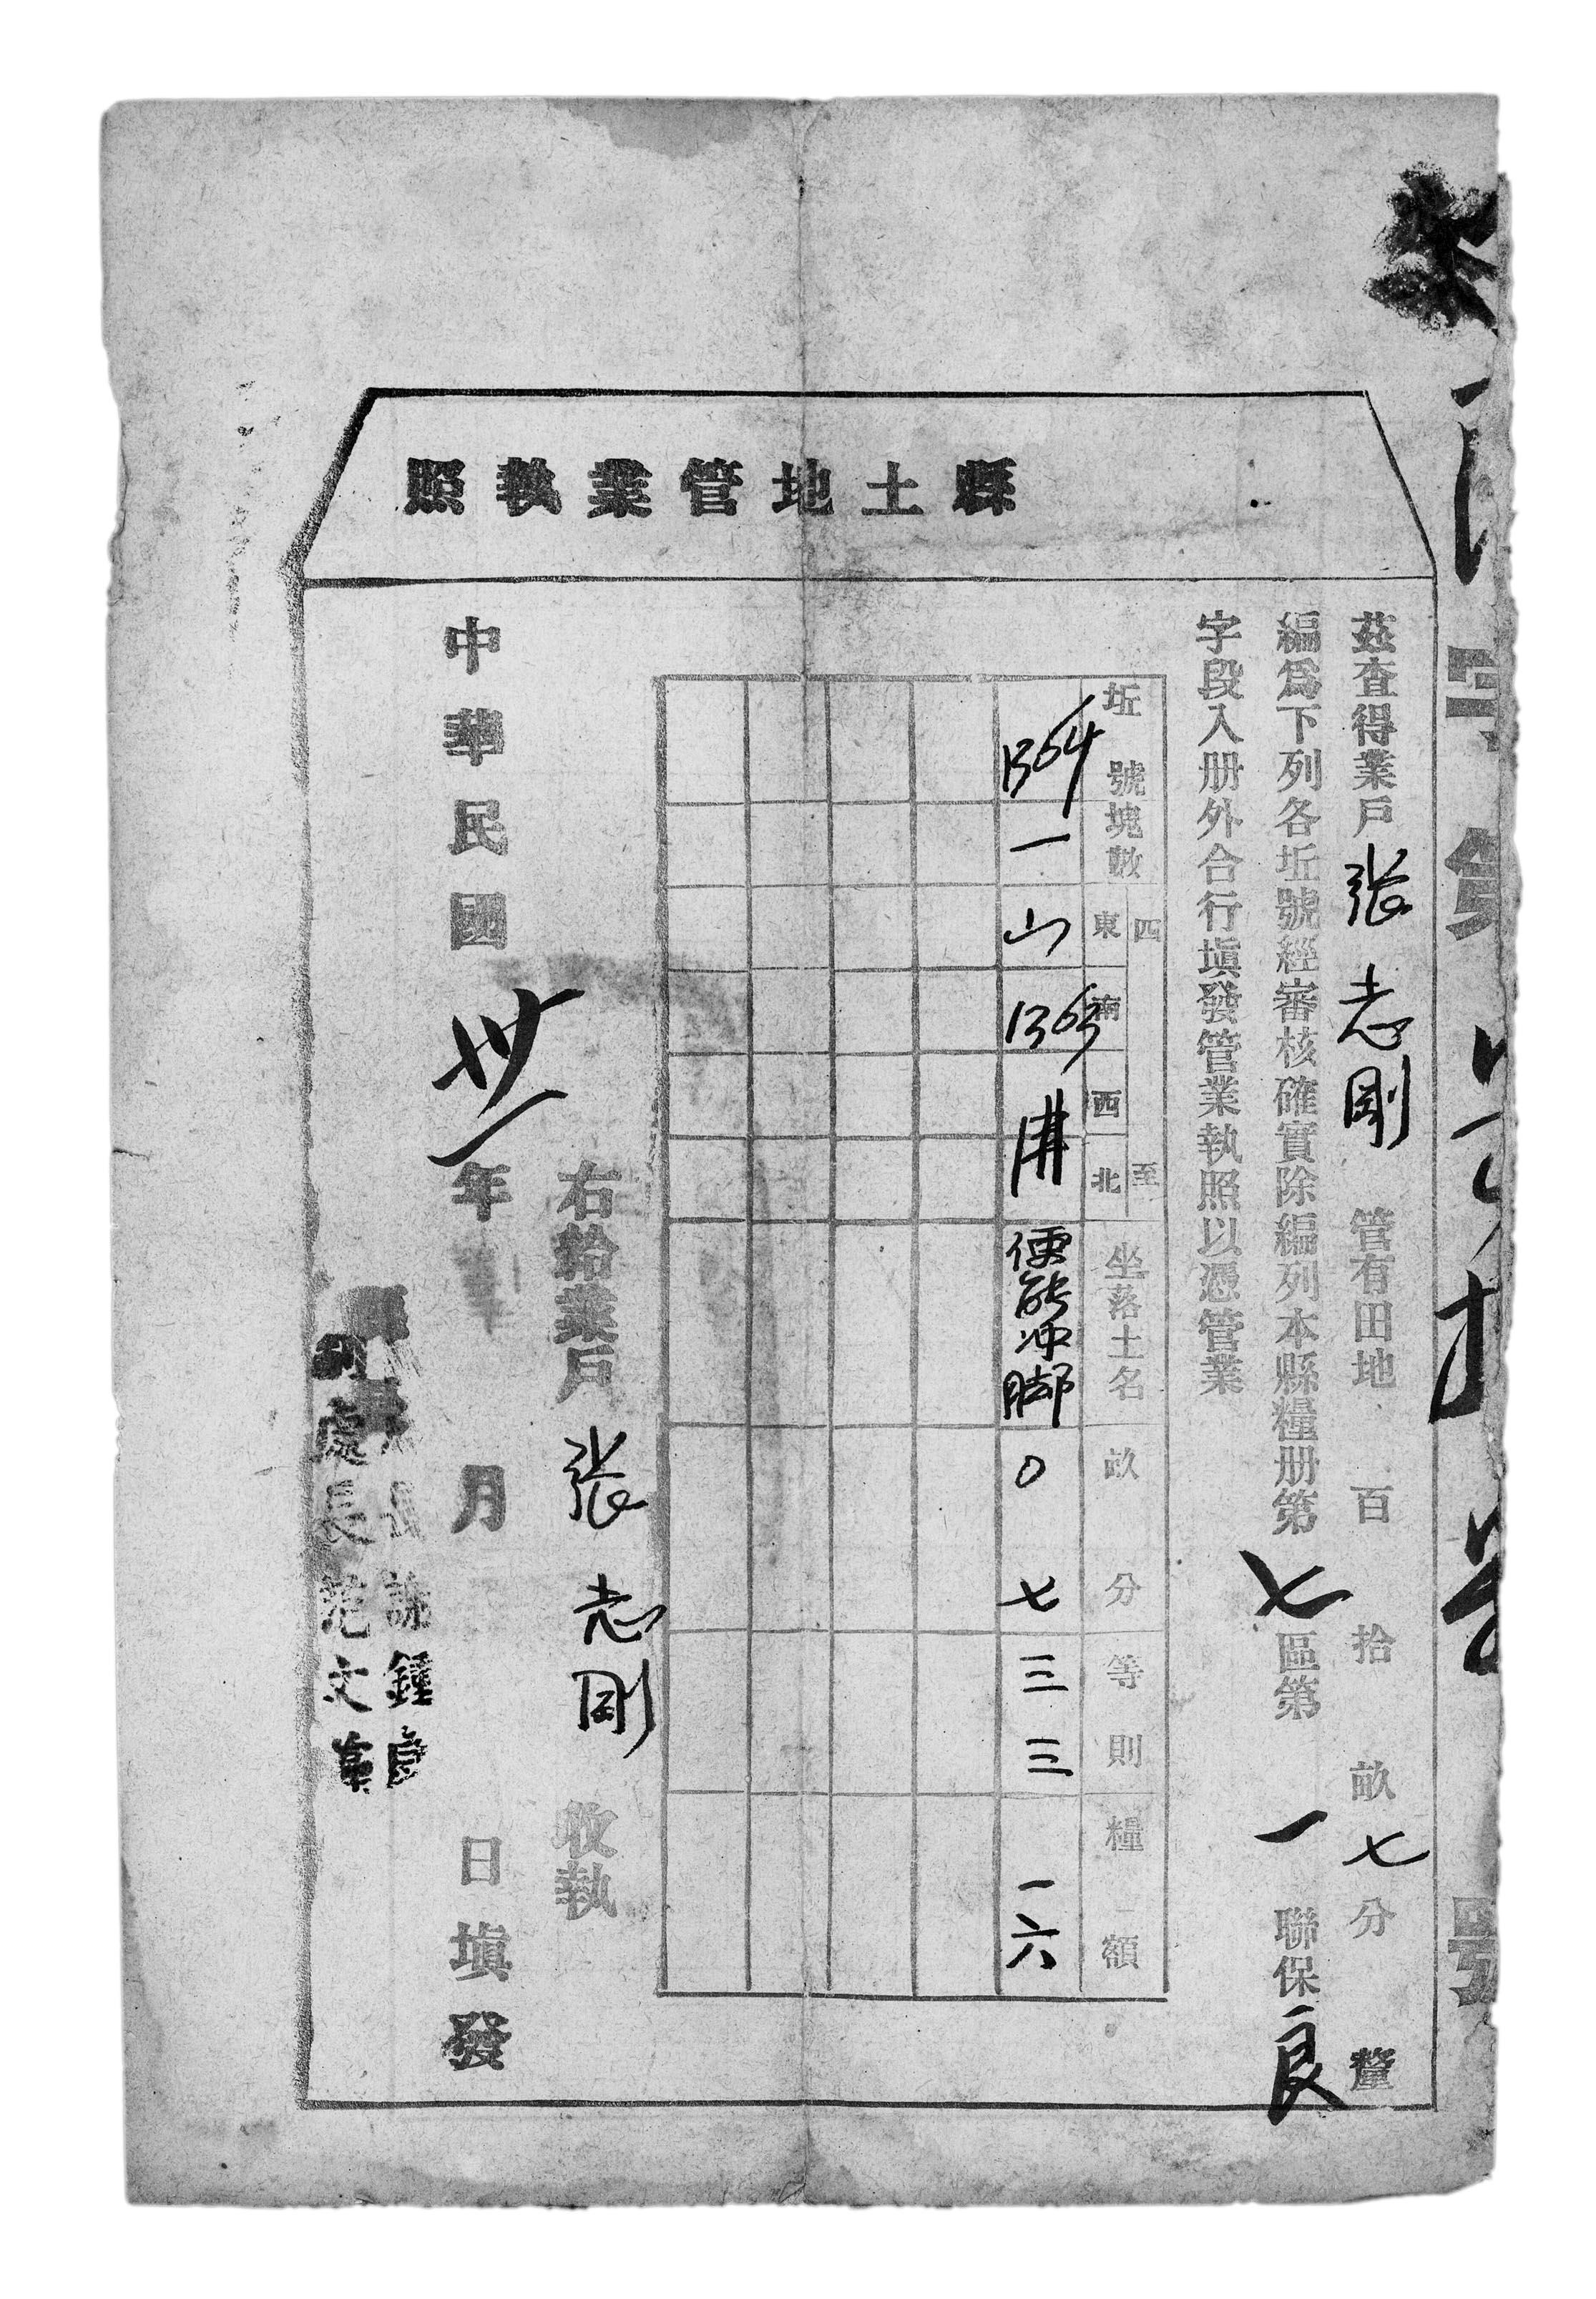 縣土地管業執照
字第
號
茲查得業戶張志剛管有田地 百 拾 畝七分 釐
編爲下列各坵號經審核確實除編列本縣糧册第七區第一聯保良
字段入册外合行塡發管業執照以憑管業
坵號 塊數 四至 東 南 西 北 坐落土名 畝 分 等則 糧額
1364 一 山 1363 便能冲脚 0 七 三 三 一六
右給業戶張志剛收執
中華民國卅一年 月 日塡發
鍾良
處長范文